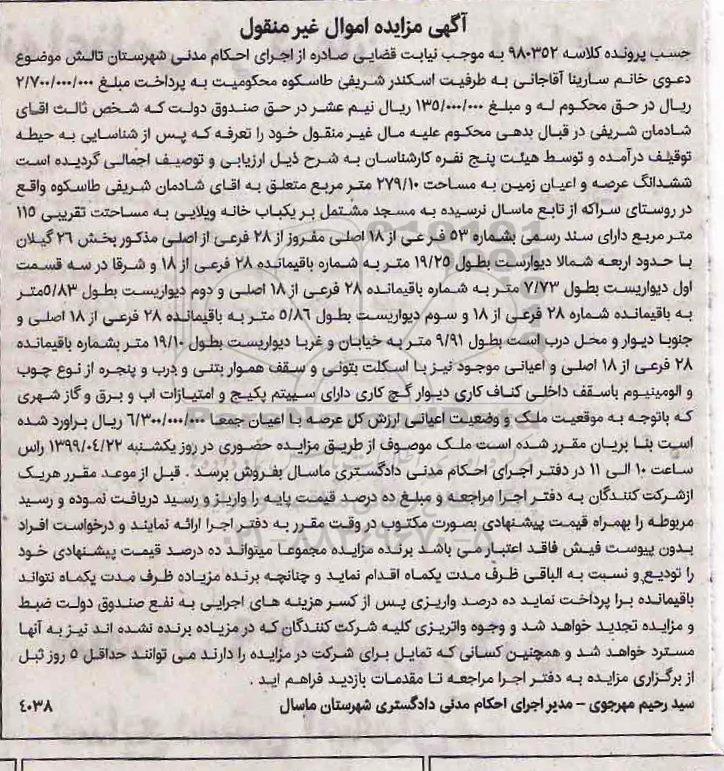 آگهی مزایده اموال غیر منقول
حسب پرونده کلاسه ۹۸۰۳۵۲ به موجب نیابت قضایی صادره از اجرای احکام مدنی شهرستان تالش موضوع
دعوی خانم سارینا آقاجانی به طرفیت اسکندر شریفی طاسکوه محکومیت به پرداخت مبلغ ۲/۷۰۰/۰۰۰/۰۰۰
ریال در حق محکوم له و مبلغ ۱۳۵/۰۰۰/۰۰۰ ریال نیم عشر در حق صندوق دولت که شخص ثالث اقای
شادمان شریفی در قبال بدهی محکوم علیه مال غیر منقول خود را تعرفه که پس از شناسایی به حیطه
توقیف درآمده و توسط هیئت پنج نفره کارشناسان به شرح ذیل ارزیابی و توصیف اجمالی گردیده است
ششدانگ عرصه و اعیان زمین به مساحت ۲۷۹/۱۰ متر مربع متعلق به اقای شادمان شریفی طاسکوه واقع
در روستای سراکه از تابع ماسال نرسیده به مسجد مشتمل بر یکباب خانه ویلایی به مساحتت تقریبی ۱۱۵
متر مربع دارای سند رسمی بشماره ۵۳ فر عی از ۱۸ اصلی مفروز از ۲۸ فرعی از اصلی مذکور بخش ۲۶ گیلان
با حدود اربعه شمالا دیوارست بطول ۱۹/۲۵ متر به شماره باقیمانده ۲۸ فرعی از ۱۸ و شرقا در سه قسمت
اول دیواریست بطول ۷/۷۳ متر به شماره باقیمانده ۲۸ فرعی از ۱۸ اصلی و دوم دیواریست بطول ۵/۸۳متر
به باقیمانده شماره ۲۸ فرعی از ۱۸ و سوم دیواریست بطول ۵/۸۶ متر به باقیمانده ۲۸ فرعی از ۱۸ اصلی و
جنوبا دیوار و محل درب است بطول ۹/۹۱ متر به خیابان و غربا دیواریست بطول ۱۹/۱۰ متر بشماره باقیمانده
۲۸ فرعی از ۱۸ اصلی و اعیانی موجود نیز با اسکلت بتونی و سقف هموار بتنی و درب و پنجره از نوع چوب
و الومینیوم باسقف داخلی کناف کاری دیوار گچ کاری دارای سییتم پکیج و امتیازات اب و برق و گاز شهری
که باتوجه به موقعیت ملک و وضعیت اعیانی ارزش کل عرصه با اعیان جمعا ۶/۳۰۰/۰۰۰/۰۰۰ ریال براورد شده
است بنا بریان مقرر شده است ملک موصوف از طریق مزایده حضوری در روز یکشنبه ۱۳۹۹/۰۴/۲۲ راس
ساعت ۱۰ الی ۱۱ در دفتر اجرای احکام مدنی دادگستری ماسال بفروش برسد . قبل از موعد مقرر هریک
ازشرکت کنندگان به دفتر اجرا مراجعه و مبلغ ده درصد قیمت پایه را واریز و رسید دریافت نموده و رسید
مربوطه را بهمراه قیمت پیشنهادی بصورت مکتوب در وقت مقرر به دفتر اجرا ارائه نمایند و درخواست افراد
بدون پیوست فیش فاقد اعتبار می باشد برنده مزایده مجموعا میتواند ده درصد قیمت پیشنهادی خود
را تودیع و نسبت به الباقی ظرف مدت یکماه اقدام نماید و چنانچه برنده مزیاده ظرف مدت یکماه نتواند
باقیمانده برا پرداخت نماید ده درصد واریزی پس از کسر هزینه های اجرایی به نفع صندوق دولت ضبط
و مزایده تجدید خواهد شد و وجوه واتریزی کلیه شرکت کنندگان که در مزیاده برنده نشده اند نیز به آنها
مسترد خواهد شد و همچنین کسانی که تمایل برای شرکت در مزایده را دارند می توانند حداقل ۵ روز ثبل
از برگزاری مزایده به دفتر اجرا مراجعه تا مقدمات بازدید فراهم اید .
سید رحیم مهرجوی – مدیر اجرای احکام مدنی دادگستری شهرستان ماسال ۴۰۳۸